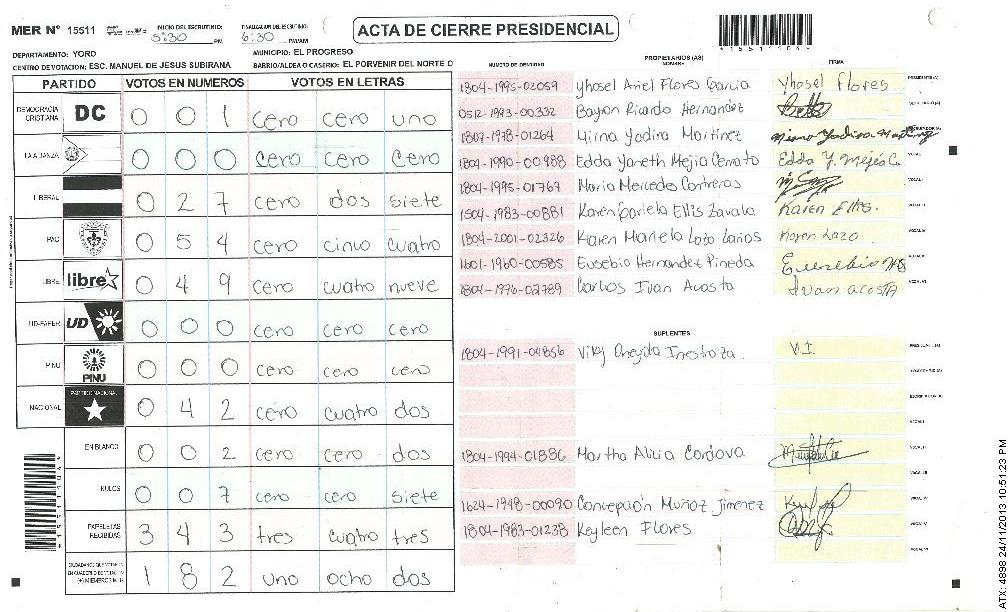 MER Nº 15511
INICIO DEL ESCRUTINIO: 5:30 PM
FINALIZACION DEL ESCRUTINIO: 6:30 PM/AM
ACTA DE CIERRE PRESIDENCIAL
DEPARTAMENTO: YORO
MUNICIPIO: EL PROGRESO
CENTRO DE VOTACION: ESC. MANUEL DE JESUS SUBIRANA
BARRIO/ALDEA O CASERIO: EL PORVENIR DEL NORTE O
PARTIDO VOTOS EN NUMEROS VOTOS EN LETRAS
DEMOCRACIA CRISTIANA DC 0 0 1 cero cero uno
LA ALIANZA 0 0 0 cero cero cero
LIBERAL 0 2 7 cero dos siete
PAC 0 5 4 cero cinco cuatro
LIBRE libre 0 4 9 cero cuatro nueve
UD-FAPER UD 0 0 0 cero cero cero
PINU PINU 0 0 0 cero cero cero
NACIONAL PARTIDO NACIONAL 0 4 2 cero cuatro dos
EN BLANCO 0 0 2 cero cero dos
NULOS 0 0 7 cero cero siete
PAPELETAS RECIBIDAS 3 4 3 tres cuatro tres
1 8 2 uno ocho dos
PROPIETARIOS (AS)
NUMERO DE IDENTIDAD NOMBRE FIRMA
1804-1995-02059 Yhosel Ariel Flores Garcia Yhosel Flores
0512-1993-00332 Bayron Ricardo Hernández
1807-1978-01264 Mirna Yadira Martinez Mirna Yadira Martinez
1804-1990-00988 Edda Yaneth Mejia Cerrato Edda Y. Mejia C.
1804-1995-01769 Maria Mercedes Contreras
1504-1983-00881 Karen Gariela Ellis Zavala Karen Ellis.
1804-2001-02326 Karen Mariela Lozo Larios Karen Lazo
1601-1960-00585 Eusebio Hernandez Pineda Eusebio
1804-1996-02789 Carlos Ivan Acosta Ivan acosta
SUPLENTES
1804-1991-04856 Vilky Oneyda Inestroza. V.I.
1804-1994-01886 Martha Alicia Cordova
1624-1948-00090 Concepción Muñoz Jimenez
1804-1983-01238 Keyleen Flores
ATX: 4898 24/11/2013 10:51:23 PM